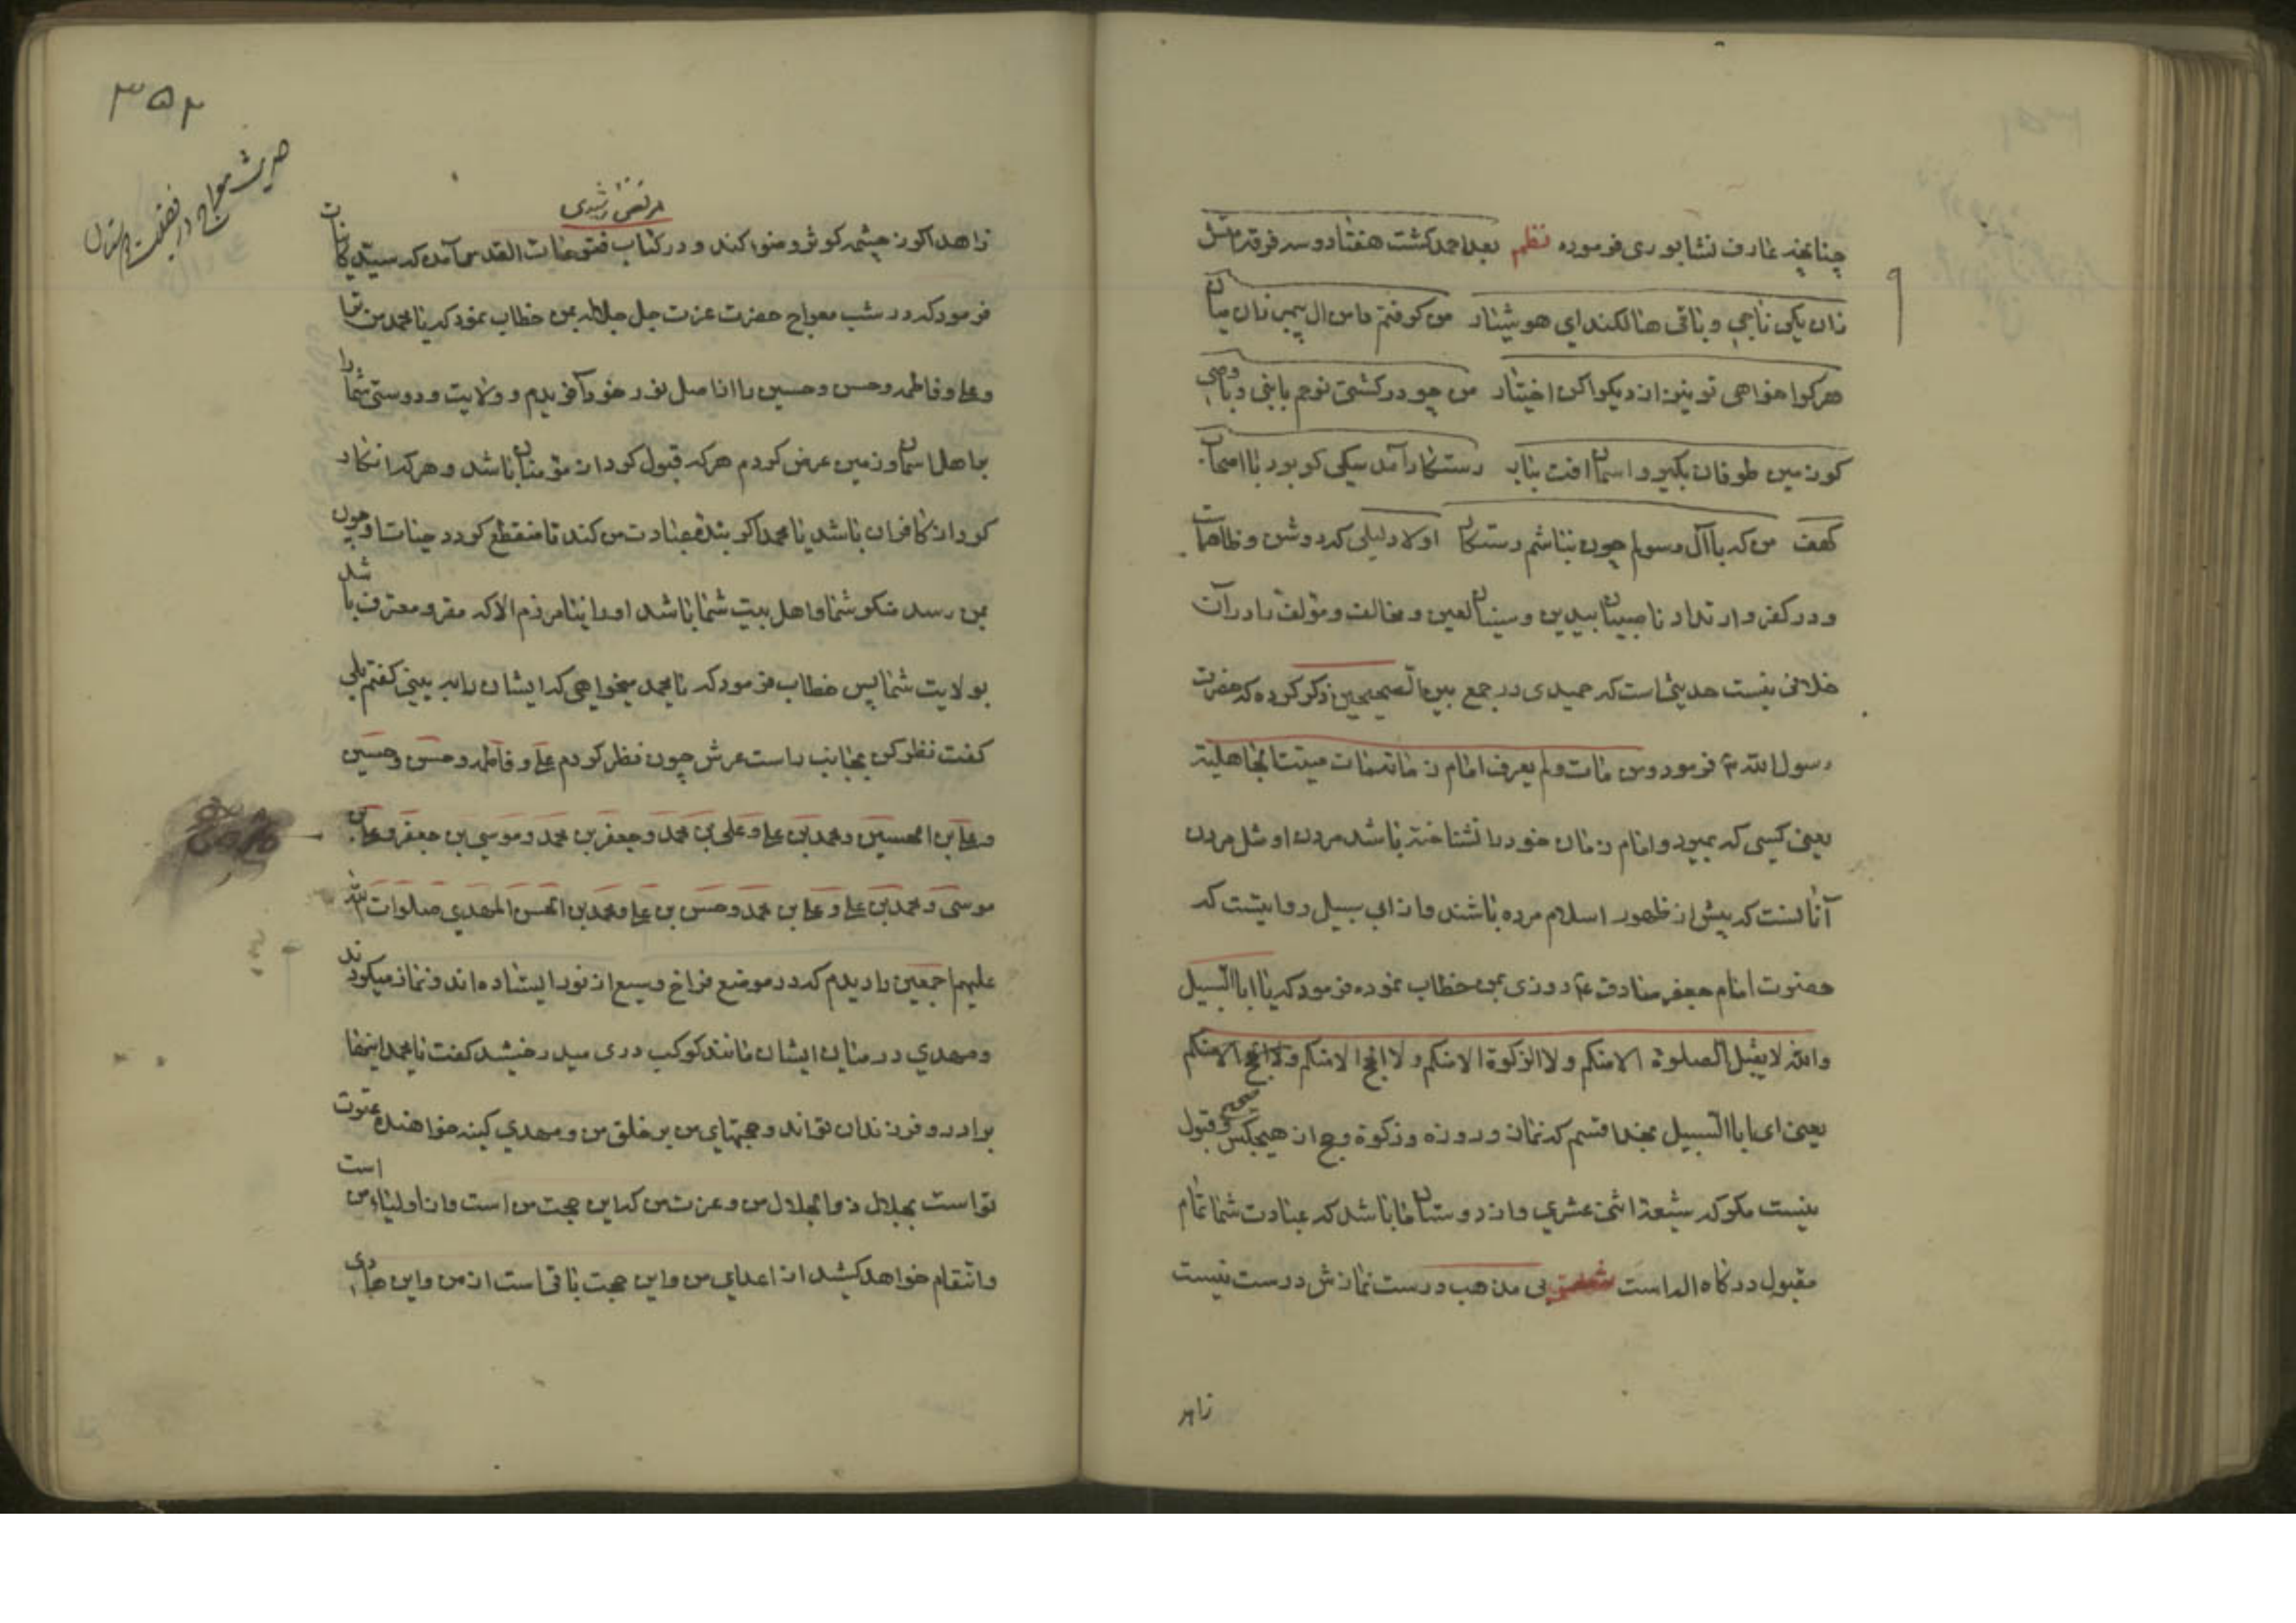 چنانچه عارف نشابوری فرموده نظم بعد احمد کشت هفتاد و سه فرقه امتش
زان یکی ناجی و باقی هالکند ای هوشیار من کرفتم دامن ال پیمبر زان میان
هرکرا خواهی تو نیز از دیکرا کن اختیار من چو در کشتی نوحم با نبی و با وصی
کر زمین طوفان بکیرد و اسمان افت ببارد رستکار آمد سکی کو بود با اصحاب
کهف من که با آل رسولم چون نباشم رستکار اولا دلیلی که روشن و ظاهر است
و در کفر و ارتداد ناصبیان بیدین و سنیان لعین و مخالف و مؤلف را در آن
خلافی نیست حدیثی است که حمیدی در جمع بین الصحیحین ذکر کرده که حضرت
رسول الله ص فرمود و من مات و لم یعرف امام زمانه مات میتتا جاهلیة
یعنی کسی که بمیرد و امام زمان خود را نشناخته باشد مردن او مثل مردن
آنانست که پیش از ظهور اسلام مرده باشند و از ابی سبیل روایتست که
حضرت امام جعفر صادق ع روزی بمن خطاب نموده فرمود که یا ابا السبیل
والله لا یقبل الصلوة الا منکم و لا الزکوة الا منکم و لا الحج الا منکم و لا الحج الا منکم
یعنی ای ابا السبیل بخدا قسم که نماز و روزه و زکوة و حج از هیچکس صحیح و قبول
نیست مکر که شیعهٔ اثنی عشری و از دوستان ما باشد که عبادت شما تمام
مقبول درکاه اله است بی مذهب درست نمازش درست نیست
زاهد
۳۵۲
زاهد اکر ز چشمه کوثر وضو کند و در کتاب فتوحات القدس آمده که سید کاینات
فرمود که در شب معراج حضرت عزت جل جلاله بمن خطاب نمود که یا محمد من ترا
و علی و فاطمه و حسن و حسین را از اصل نور خود آفریدم و ولایت و دوستی شما را
بر اهل اسمان و زمین عرض کردم هر که قبول کرد از مؤمنان باشد و هر که انکار
کرد از کافران باشد یا محمد اکر بنده عبادت من کند تا منقطع کردد حیات او و چون
بمن رسد منکر شما و اهل بیت شما باشد او را نیامرزم الا که مقر و معترف باشد
بولایت شما پس خطاب فرمود که یا محمد میخواهی که ایشان را به بینی کفتم بلی
کفت نظر کن بجانب راست عرش چون نظر کردم علی و فاطمه و حسن و حسین
و علی بن الحسین و محمد بن علی و علی بن محمد و جعفر بن محمد و موسی بن جعفر و علی بن
موسی و محمد بن علی و علی بن محمد و حسن بن علی و محمد بن الحسن المهدی صلوات الله
علیهم اجمعین را دیدم که در موضع فراخ وسیع از نور ایستاده اند و نماز میکردند
و مهدی در میان ایشان مانند کوکب دری میدرخشید کفت یا محمد اینها
برادر و فرزندان تواند و حجتهای من بر خلق من و مهدی کینه خواهنده عترت
تو است بجلال ذو الجلال من و عزت من که این حجت من است و از اولیاء من است
و انتقام خواهد کشید از اعدای من و این حجت باقی است از من و این هادی